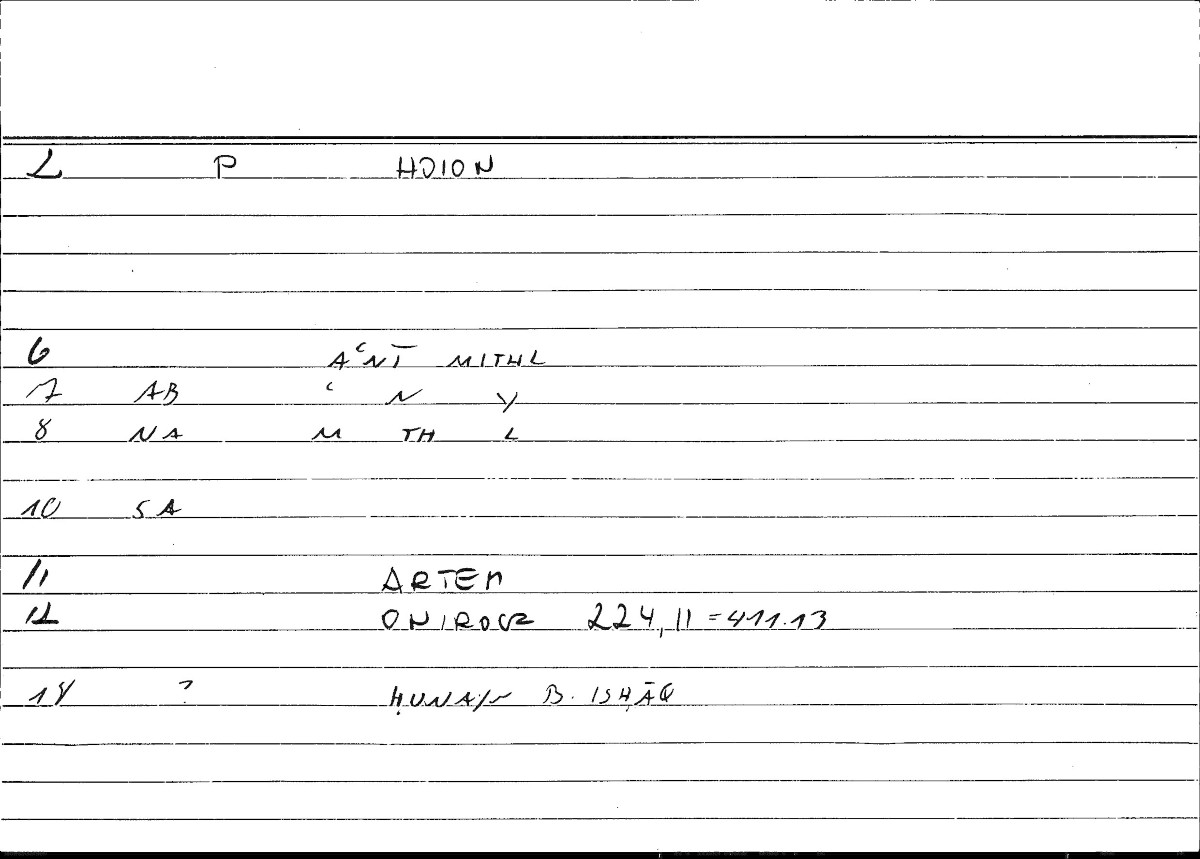 2 P HDION
6 AʿNĪ MITHL
7 AB ʿ N Y
8 NA M TH L
10 SA
11 ARTEM
12 ONIROCR 224,11 = 411.13
14 ? ḤUNAYN B. ISḤĀQ